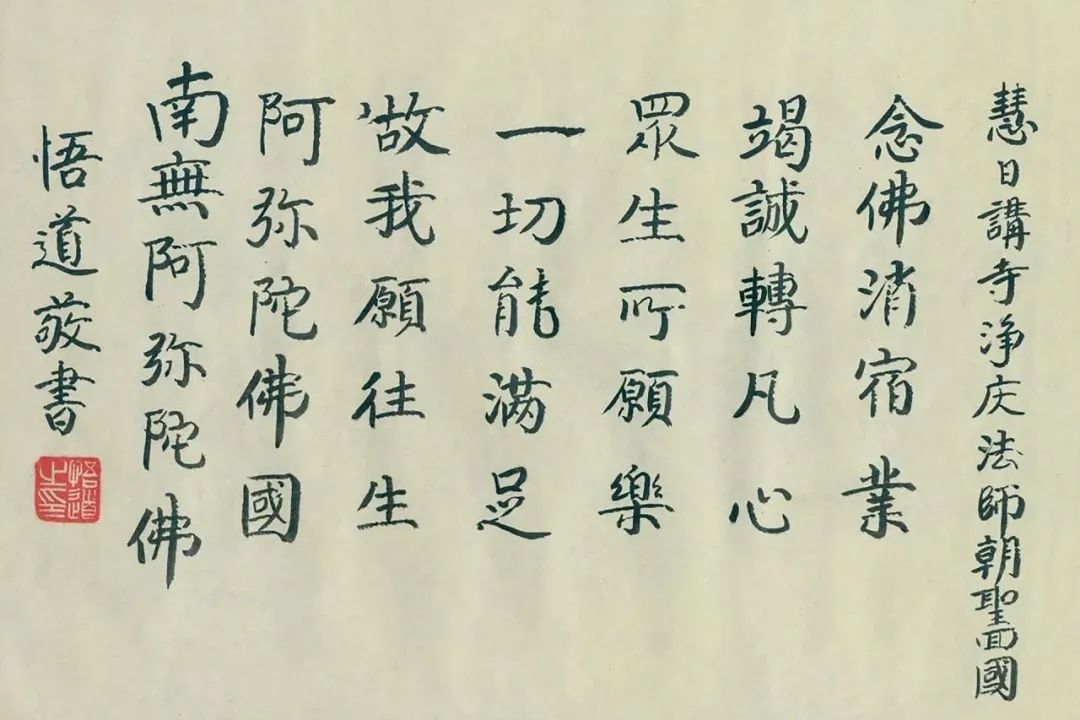 慧日講寺淨庆法師朝聖面國
念佛消宿業
竭誠轉凡心
眾生所願樂
一切能滿足
故我願往生
阿弥陀佛國
南無阿弥陀佛
悟道敬書
悟道之印